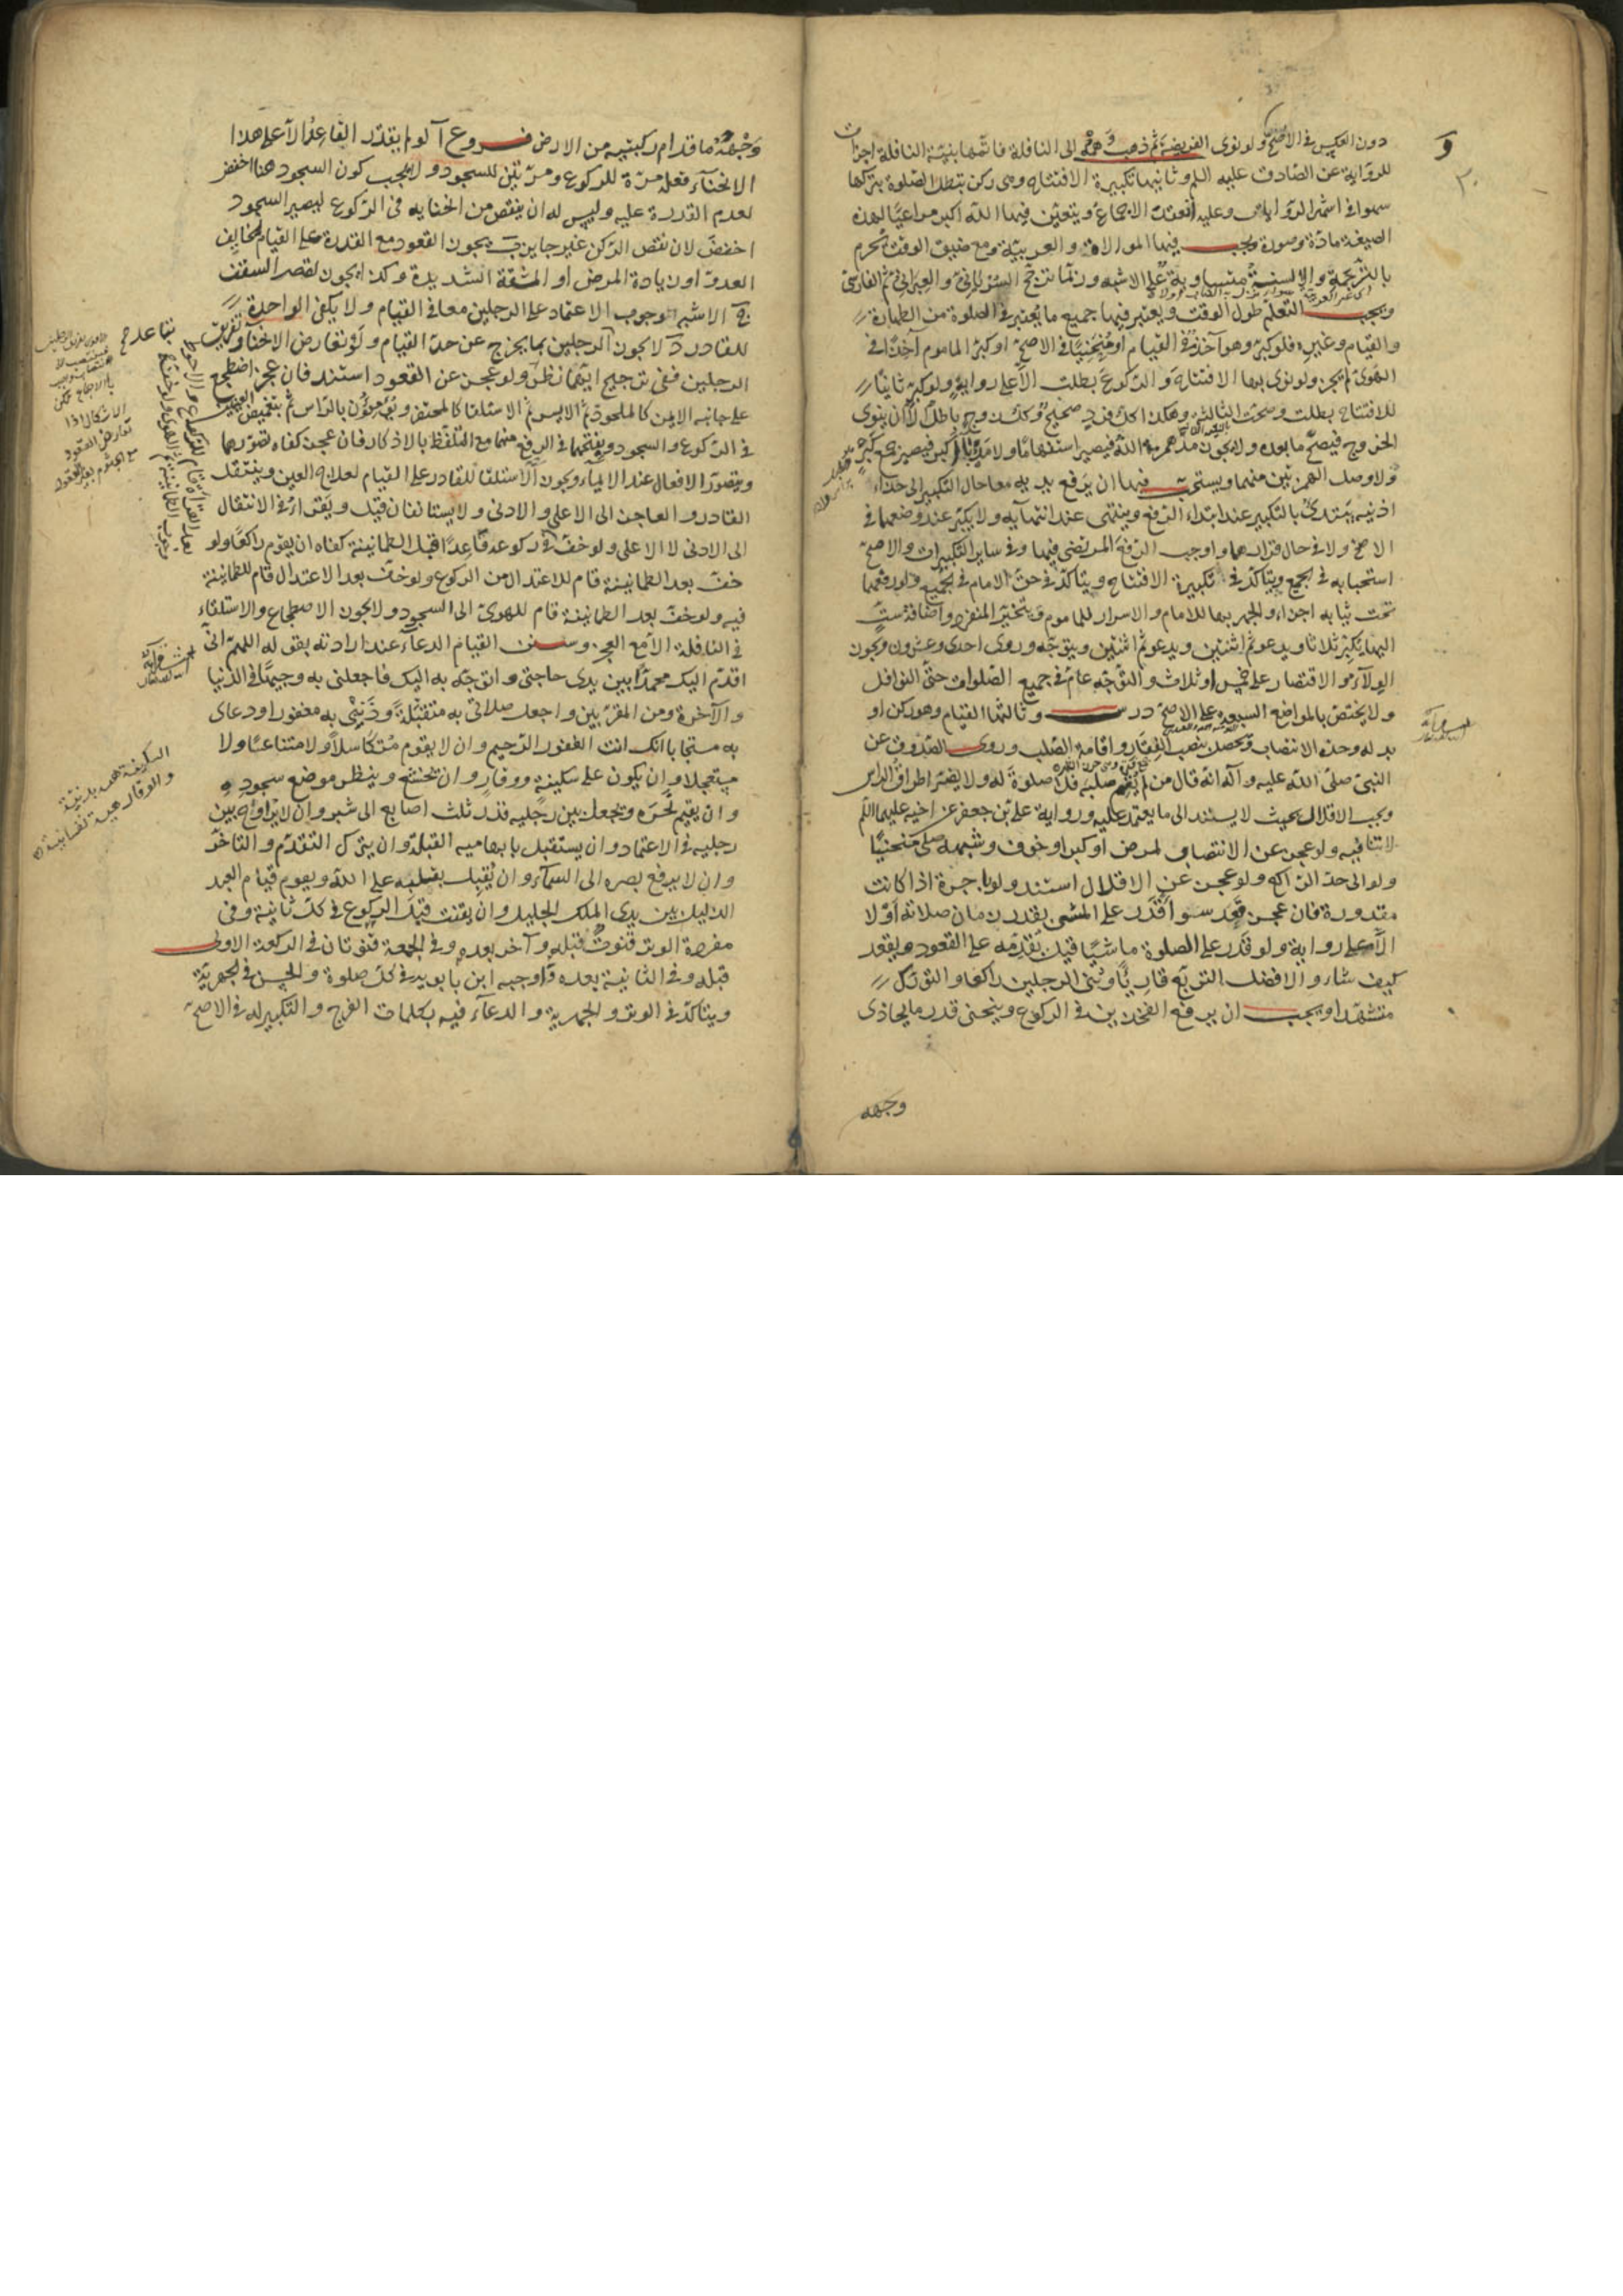 دون العكس في الاصح ولو نوى الفريضة ثم ذهب وهمه الى النافلة فاتمها بنية النافلة اجزأت
للرواية عن الصادق عليه السلم وثانيها تكبيرة الافتتاح وهى ركن تبطل الصلوة بتركها
سهوا في اشهر الروايات وعليه انعقد الاجماع ويتعين فيها الله اكبر مراعيا لهذه
الصيغة مادة وصورة ويجب فيها الموالاة والعربية ومع ضيق الوقت يحرم
بالترجمة والالسنة متساوية على الاشبه وربما ترجح السرياني والعبراني ثم الفارسي
ويجب التعلم طول الوقت ويعتبر فيها جميع ما يعتبر في الصلوة من الطهارة
والقيام وغيره فلو كبر وهو آخذ في القيام او منحنيا في الاصح او كبر الماموم آخذا في
الهوى لم يجز ولو نوى بها الافتتاح والركوع بطلت الا على رواية ولو كبر ثانيا
للافتتاح بطلت وصحت الثالثة وهكذا كل فرد صحيح وكل زوج باطل الا ان ينوى
الخروج فيصح ما بعده ولا يجوز مد همزة الله فيصير استفهاما ولا مد باء اكبر فيصير جمع كبر
ولا وصل الهمزتين منهما ويستحب فيها ان يرفع يديه معا حال التكبير الى حذاء
اذنيه يبتدئ بالتكبير عند ابتداء الرفع وينتهى عند انتهآيه ولا يكبر عند وضعهما في
الاصح ولا في حال قرارهما واوجب الرفع المرتضى فيها وفي ساير التكبيرات والاصح
استحبابه في الجميع ويتاكد في تكبيرة الافتتاح ويتاكد في حق الامام في الجميع ولو رفعهما
تحت ثيابه اجزاء والجهر بها للامام والاسرار للماموم ويتخير المنفرد واضافة ست
اليها يكبر ثلاثا ويدعو ثم اثنتين ويدعو ثم اثنتين ويتوجه وروى احدى وعشرون ويجوز
الولاء والاقتصار على خمس او ثلاث والتوجه عام في جميع الصلوات حتى النوافل
ولا يختص بالمواضع السبعة على الاصح درس وثالثها القيام وهو ركن او
بدله وحده الانتصاب ويحصل بنصب الفقار واقامة الصلب وروى الصدوق عن
النبى صلى الله عليه وآله انه قال من لم يقم صلبه فلا صلوة له ولا يضر اطراق الراس
ويجب الاقلال بحيث لا يستند الى ما يعتمد عليه ورواية على بن جعفر عن اخيه عليهما السلم
لا تنافيه ولو عجز عن الانتصاب لمرض او كبر او خوف وشبهه صلى منحنيا
ولو الى حد الراكع ولو عجز عن الاقلال استند ولو باجرة اذا كانت
مقدورة فان عجز قعد سواء قدر على المشى بقدر زمان صلاته او لا
الا على رواية ولو قدر على الصلوة ماشيا قيل يقدمه على القعود ويقعد
كيف شاء والافضل التربع قاريا وثنى الرجلين راكعا والتورك
متشهدا ويجب ان يرفع الفخذين في الركوع وينحنى قدر ما يحاذى
وجهه
وجهه ما قدام ركبتيه من الارض فروع آ لو لم يقدر القاعد الا على هذا
الانحناء فعله مرة للركوع ومرتين للسجود ولا يجب كون السجود هنا اخفض
لعدم القدرة عليه وليس له ان ينقص من انحنايه في الركوع ليصير السجود
اخفض لان نقص الركن غير جايز ب يجوز القعود مع القدرة على القيام لخايف
العدو او زيادة المرض او المشقة الشديدة وكذا يجوز لقصر السقف
ج الاشبه وجوب الاعتماد على الرجلين معا في القيام ولا يكفى الواحدة
للقادر د لا يجوز تباعد الرجلين بما يخرج عن حد القيام ولو تعارض الانحناء وتفريق
الرجلين ففى ترجيح ايهما نظر ه ولو عجز عن القعود استند فان عجز اضطجع
على جانبه الايمن كالملحود ثم الايسر ثم الاستلقا كالمحتضر ويومؤن بالراس ثم بتغميض العينين
في الركوع والسجود وبفتحهما في الرفع منهما مع التلفظ بالاذكار فان عجز كفاه تصورها
ويتصور الافعال عند الايماء ويجوز الاستلقا للقادر على القيام لعلاج العين وينتقل
القادر والعاجز الى الاعلى والادنى ولا يستانفان قيل ويقرا في الانتقال
الى الادنى لا الاعلى ولو خف في ركوعه قاعدا قبل الطمانينة كفاه ان يقوم راكعا ولو
خف بعد الطمانينة قام للاعتدال من الركوع ولو خف بعد الاعتدال قام للطمانينة
فيه ولو خف بعد الطمانينة قام للهوى الى السجود ولا يجوز الاضطجاع والاستلقاء
في النافلة الا مع العجز وسنن القيام الدعاء عند ارادته بقوله اللهم انى
اقدم اليك محمدا بين يدى حاجتى واتوجه به اليك فاجعلنى به وجيها في الدنيا
والآخرة ومن المقربين واجعل صلاتى به متقبلة وذنبى به مغفورا ودعاى
به مستجابا انك انت الغفور الرحيم وان لا يقوم متكاسلا ولا متناعسا ولا
مستعجلا وان يكون على سكينة ووقار وان يتخشع وينظر موضع سجوده
وان يقيم نحره ويجعل بين رجليه قدر ثلث اصابع الى شبر وان لا يراوح بين
رجليه في الاعتماد وان يستقبل بابهاميه القبلة وان يترك التقدم والتاخر
وان لا يرفع بصره الى السماء وان يقبل بقلبه على الله ويقوم قيام العبد
الذليل بين يدى الملك الجليل وان يقنت قبل الركوع في كل ثانية وفي
مفردة الوتر قنوت قبله وآخر بعده وفي الجمعة قنوتان في الركعة الاولى
قبله وفي الثانية بعده واوجبه ابن بابويه في كل صلوة والحسن في الجهرية
ويتاكد في الوتر والجهرية والدعاء فيه بكلمات الفرج والتكبير له في الاصح
السكينة هيئة بدنية
والوقار هيئة نفسانية